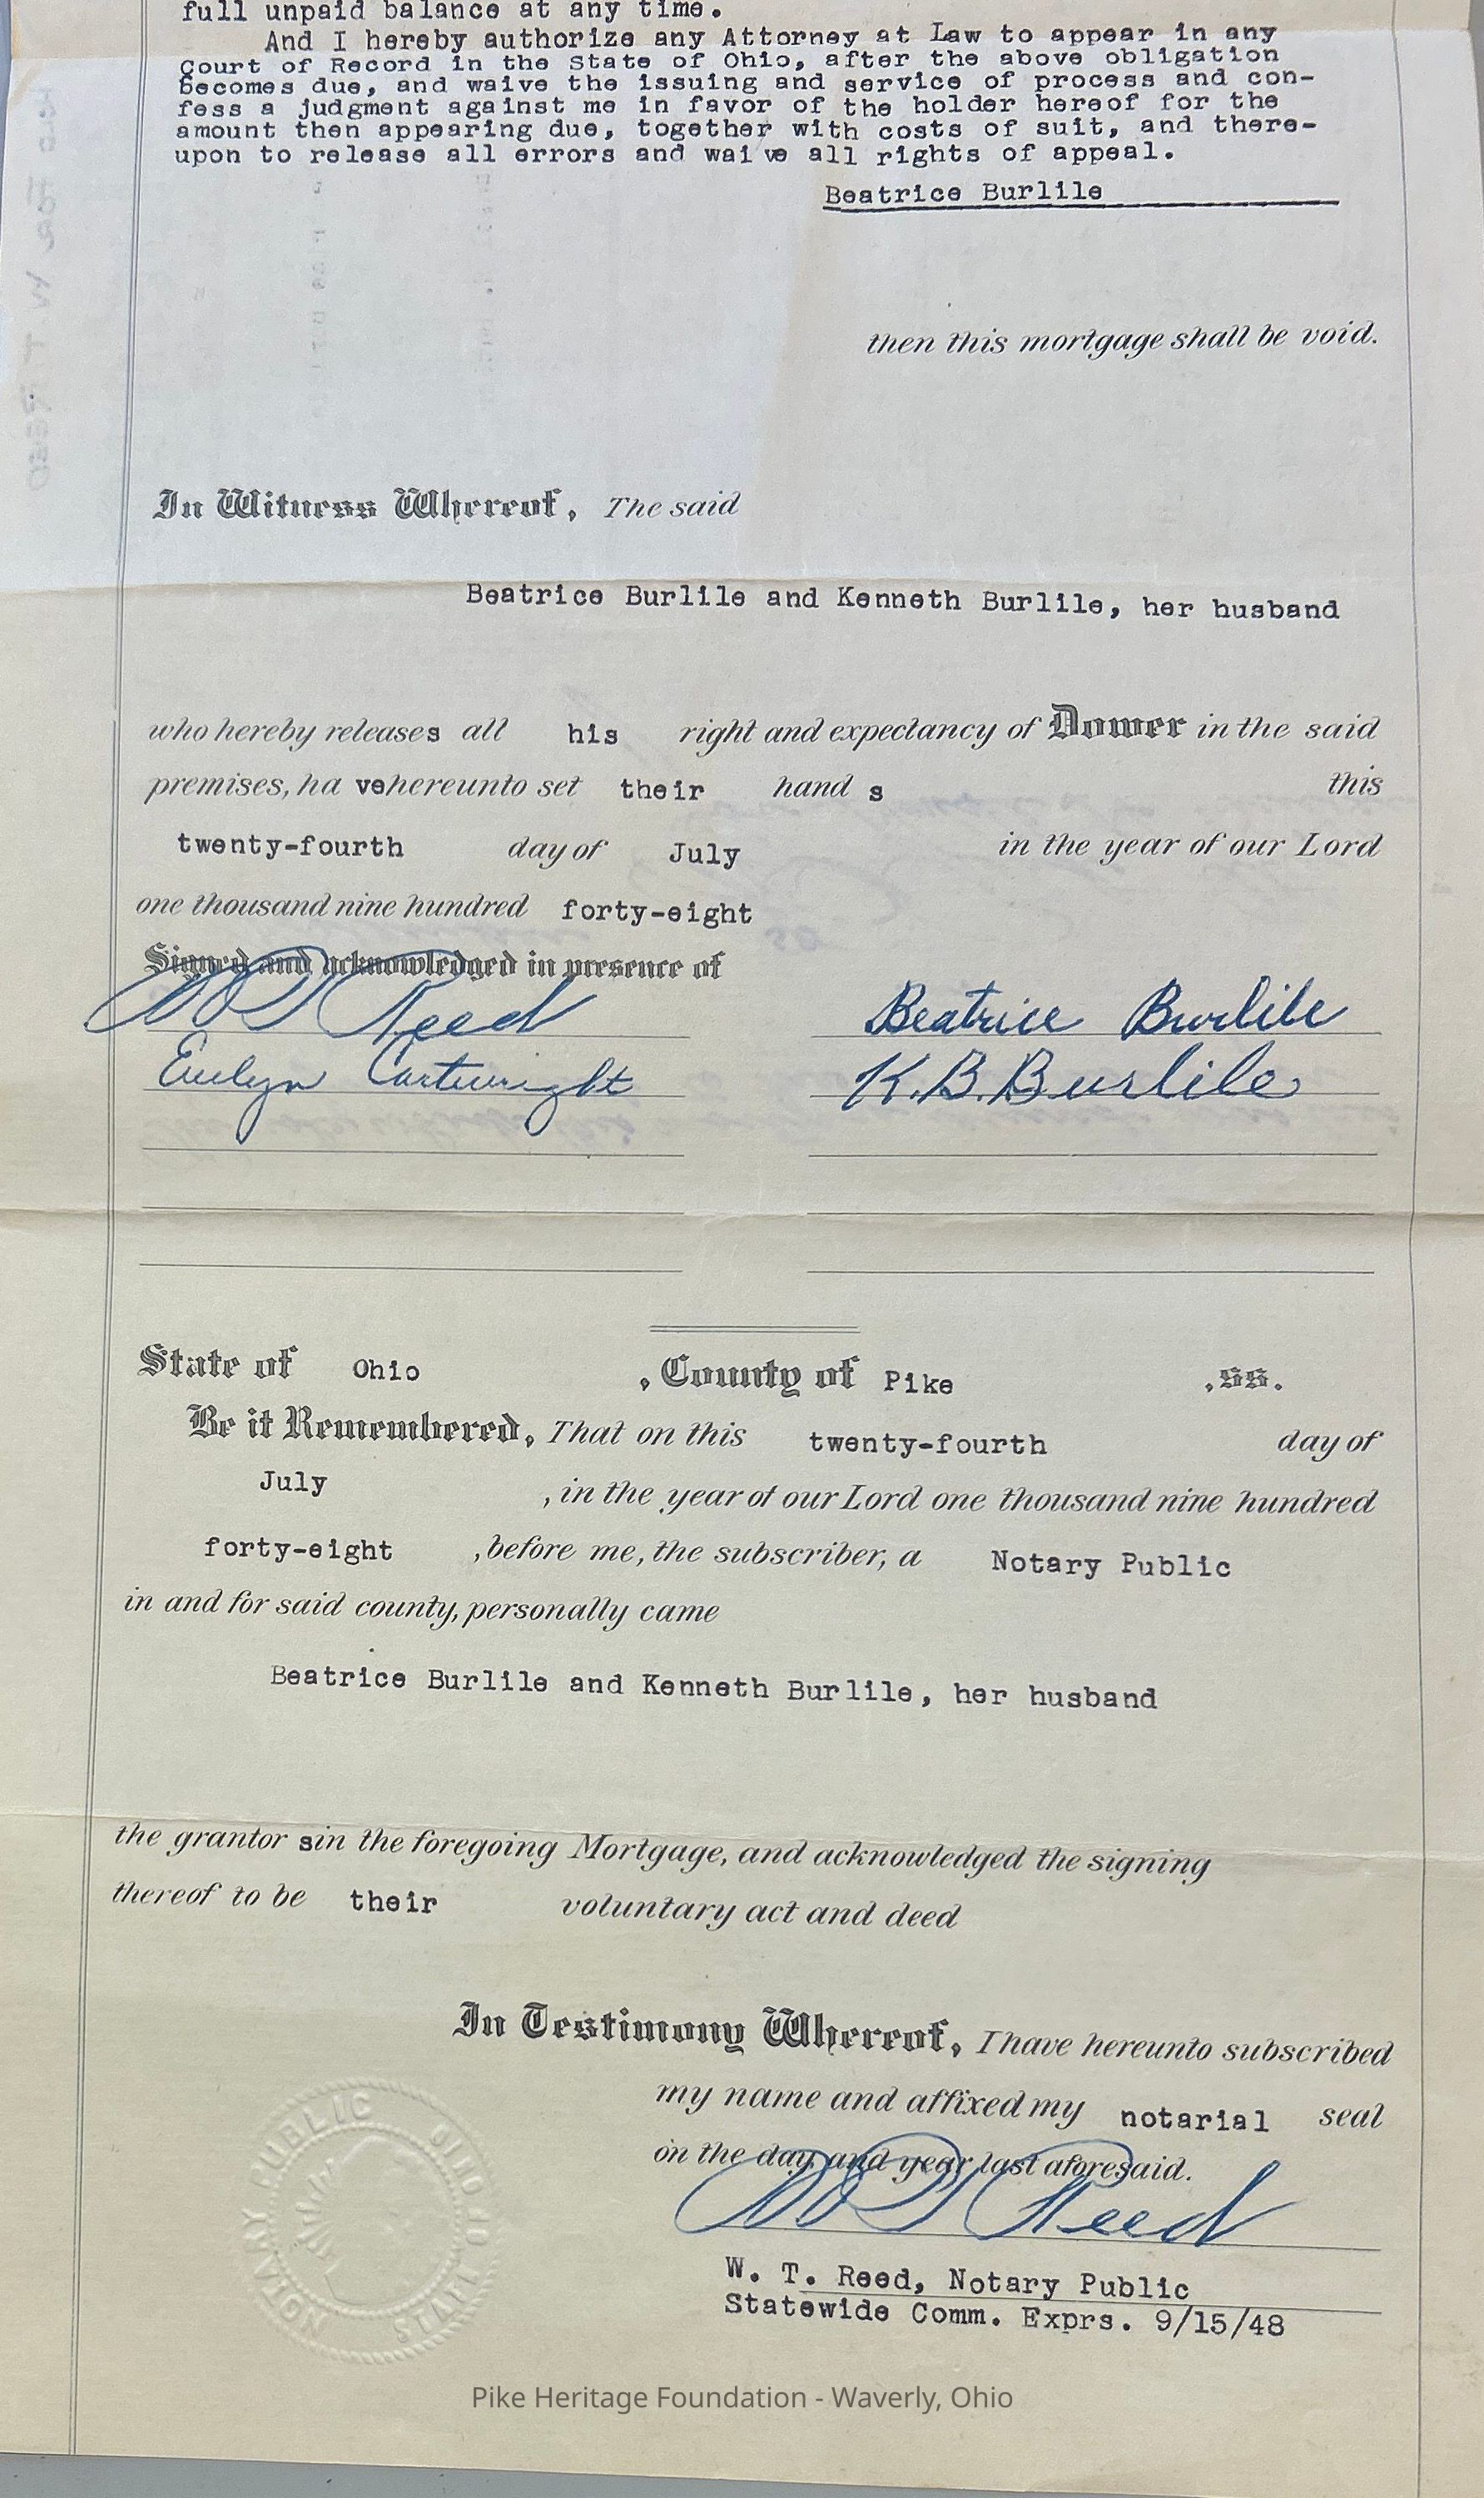 full unpaid balance at any time.
And I hereby authorize any Attorney at Law to appear in any
Court of Record in the State of Ohio, after the above obligation
becomes due, and waive the issuing and service of process and con-
fess a judgment against me in favor of the holder hereof for the
amount then appearing due, together with costs of suit, and there-
upon to release all errors and waive all rights of appeal.
Beatrice Burlile
then this mortgage shall be void.
In Witness Whereof, The said
Beatrice Burlile and Kenneth Burlile, her husband
who hereby releases all his right and expectancy of Dower in the said
premises, ha ve hereunto set their hand s this
twenty-fourth day of July in the year of our Lord
one thousand nine hundred forty-eight
Signed and acknowledged in presence of
W T Reed Beatrice Burlile
Evelyn Cartwright K. B. Burlile
State of Ohio , County of Pike , ss.
Be it Remembered, That on this twenty-fourth day of
July , in the year of our Lord one thousand nine hundred
forty-eight , before me, the subscriber, a Notary Public
in and for said county, personally came
Beatrice Burlile and Kenneth Burlile, her husband
the grantor s in the foregoing Mortgage, and acknowledged the signing
thereof to be their voluntary act and deed
In Testimony Whereof, I have hereunto subscribed
my name and affixed my notarial seal
on the day and year last aforesaid.
NOTARY PUBLIC
STATE OF OHIO
W T Reed
W. T. Reed, Notary Public
Statewide Comm. Exprs. 9/15/48
Pike Heritage Foundation - Waverly, Ohio